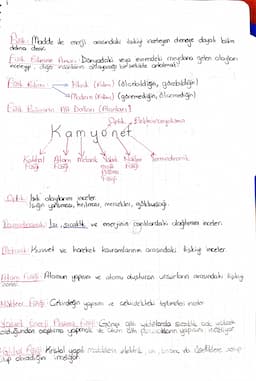 Fizik: Madde ile enerji arasındaki ilişkiyi inceleyen deneye dayalı bilim
dalına denir.
Fizik Biliminin Amacı: Dünyadaki veya evrendeki meydana gelen olayları
inceleyip, diğer insanların anlayacağı
Fizik Bilimi → Klasik (Bilim) (ölçebildiğin, görebildiğin)
→ Modern (Bilim) (görmediğin, ölçemediğin)
Fizik Biliminin Alt Dalları (Alanları)
Optik Elektromanyetizma
Kamyonet
Katıhal Fiziği Atom Fiziği Mekanik Yüksek Enerji Plazma Fiziği Nükleer Fiziği Termodinamik
Optik: Işık olaylarını inceler.
Işığın yansıması, kırılması, mercekler, gökkuşağı.
Termodinamik: Isı, sıcaklık ve enerjinin dağılımını inceler.
Mekanik: Kuvvet ve hareket kavramlarının arasındaki ilişkiyi inceler.
Atom Fiziği: Atomun yapısını ve atomu oluşturan unsurların arasındaki ilişkiyi
Nükleer Fiziği: Çekirdeğin yapısını ve çekirdekteki inceler
Yüksek Enerji Plazma Fiziği: Güneş gibi yıldızlarda sıcaklık çok yüksek
olduğundan yapısını inceliyor
Katıhal Fiziği: Kristal yapılı maddelerin elektrik, ısı, özelliklere sahip
olup olmadığını inceliyor